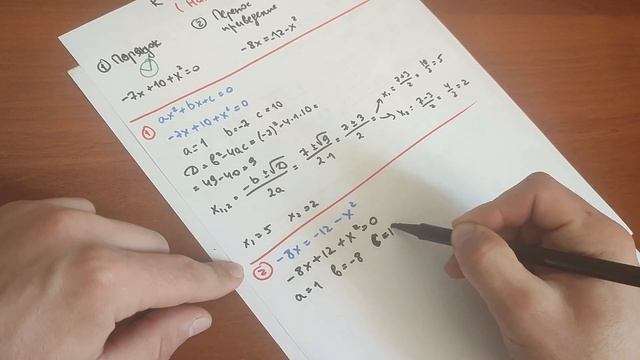 ① Порядок
-7x+10+x²=0
② Перенос
приведение
-8x=-12-x²
① ax²+bx+c=0
-7x+10+x²=0
a=1 b=-7 c=10
D=b²-4ac=(-7)²-4·1·10=
=49-40=9
x₁,₂=-b±√D/2a=7±√9/2·1=7±3/2
x₁=7+3/2=10/2=5
x₂=7-3/2=4/2=2
x₁=5 x₂=2
② -8x=-12-x²
-8x+12+x²=0
a=1 b=-8 c=1